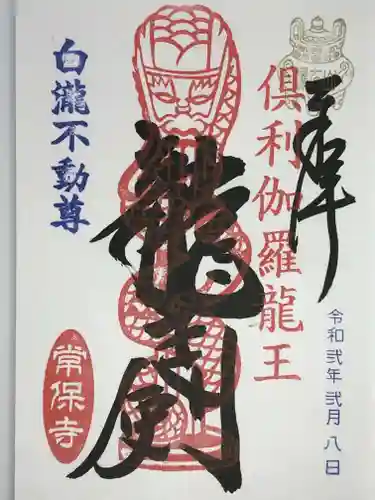 奉拝
倶利伽羅龍王
令和弐年弐月八日
白瀧不動尊
常保寺